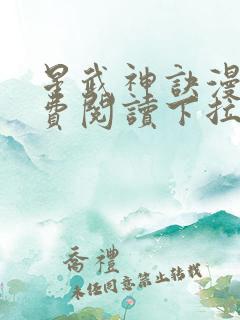 星武神訣漫
費閱讀下拉
喬禮
未经同意禁止转载